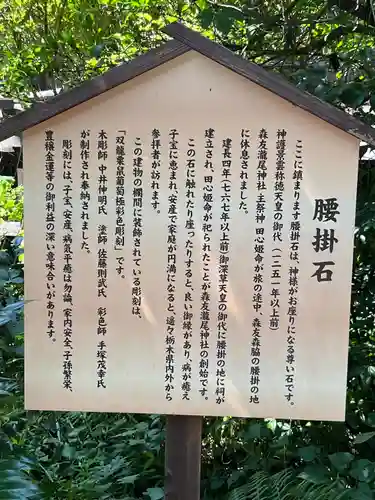 腰掛石
ここに鎮まります腰掛石は、神様がお座りになる尊い石です。
神護景雲称徳天皇の御代（一二五一年以上前）、
森友瀧尾神社 主祭神 田心姫命が旅の途中、森友森脇の腰掛の地
に休息されました。
建長四年（七六七年以上前）御深草天皇の御代に腰掛の地に祠が
建立され、田心姫命が祀られたことが森友瀧尾神社の創始です。
この石に触れたり座ったりすると、良い御縁があり、病が癒え
子宝に恵まれ、安産で家庭が円満になると、遥々栃木県内外から
参拝者が訪れます。
この建物の欄間に装飾されている彫刻は、
「双龍栗鼠葡萄極彩色彫刻」です。
木彫師 中井伸明氏 塗師 佐藤則武氏 彩色師 手塚茂幸氏
が制作され奉納されました。
彫刻には、子宝、安産、病気平癒は勿論、家内安全、子孫繁栄、
豊穣金運等の御利益の深い意味合いがあります。